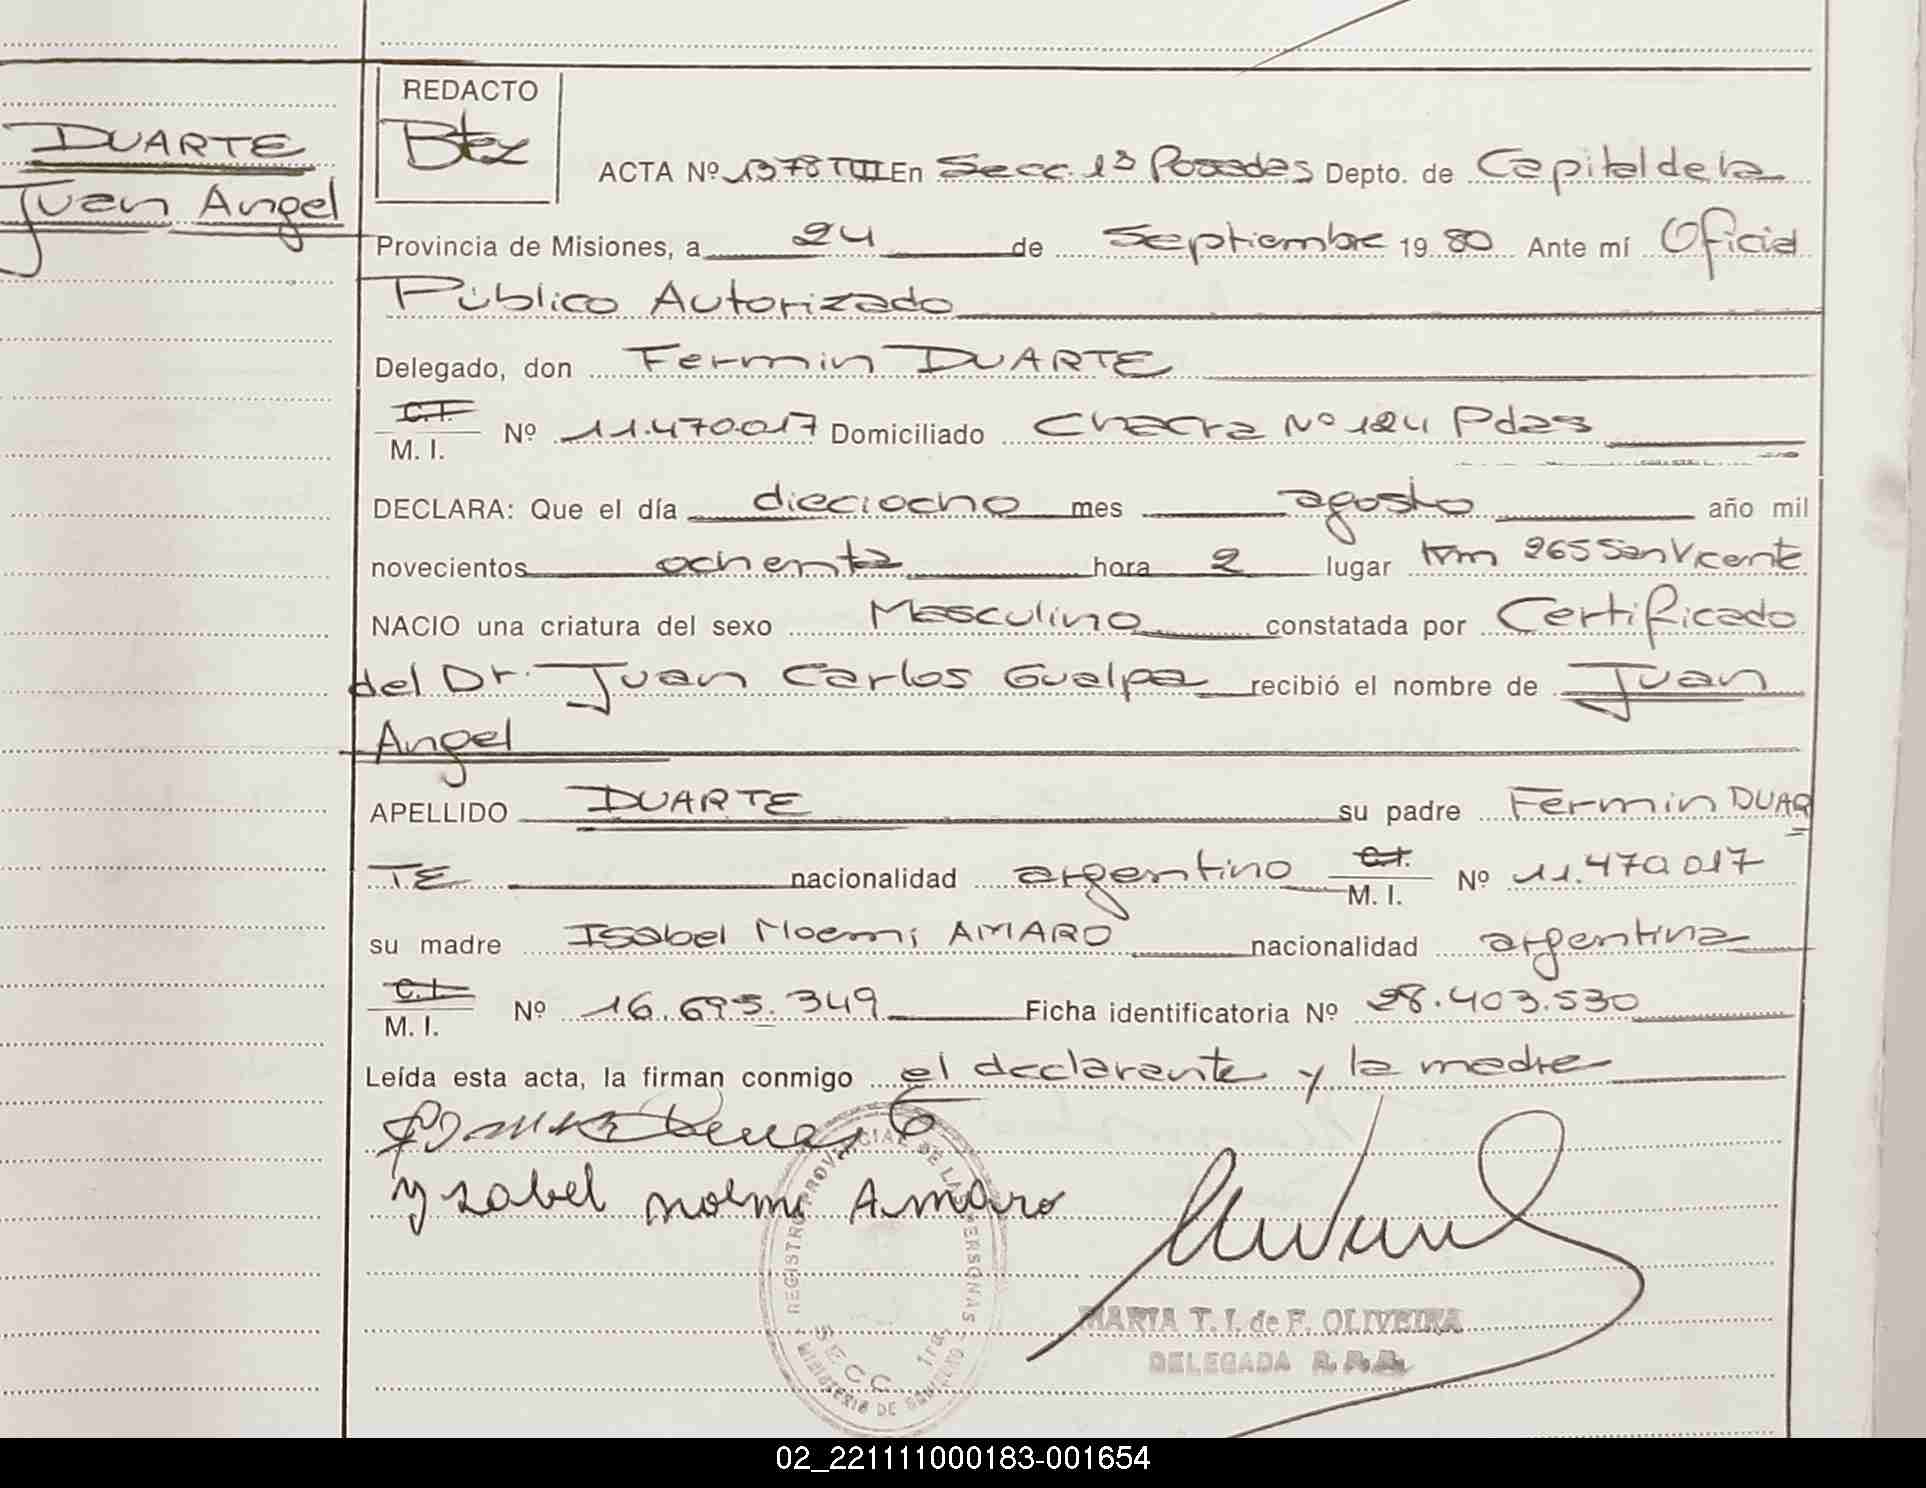 DUARTE
Juan Angel
REDACTO
Btez
ACTA Nº 1378 TIII En Secc. 1ª Posadas Depto. de Capital de la
Provincia de Misiones, a 24 de Septiembre 19 80 Ante mí Oficial
Público Autorizado
Delegado, don Fermin DUARTE
C.I.
M. I. Nº 11.470.017 Domiciliado Chacra Nº 124 Pdas
DECLARA: Que el día dieciocho mes agosto año mil
novecientos ochenta hora 2 lugar Km 265 San Vicente
NACIO una criatura del sexo Masculino constatada por Certificado
del Dr. Juan Carlos Gualpa recibió el nombre de Juan
Angel
APELLIDO DUARTE su padre Fermin DUAR
TE nacionalidad argentino C.I. M. I. Nº 11.470.017
su madre Isabel Noemi AMARO nacionalidad argentina
C.I.
M. I. Nº 16.695.349 Ficha identificatoria Nº 28.403.530
Leída esta acta, la firman conmigo el declarante y la madre
Ysabel noemi Amaro
REGISTRO PROVINCIAL DE LAS PERSONAS
SECC. 1ra.
MINISTERIO DE GOBIERNO
MARIA T. I. de F. OLIVEIRA
DELEGADA
02_221111000183-001654